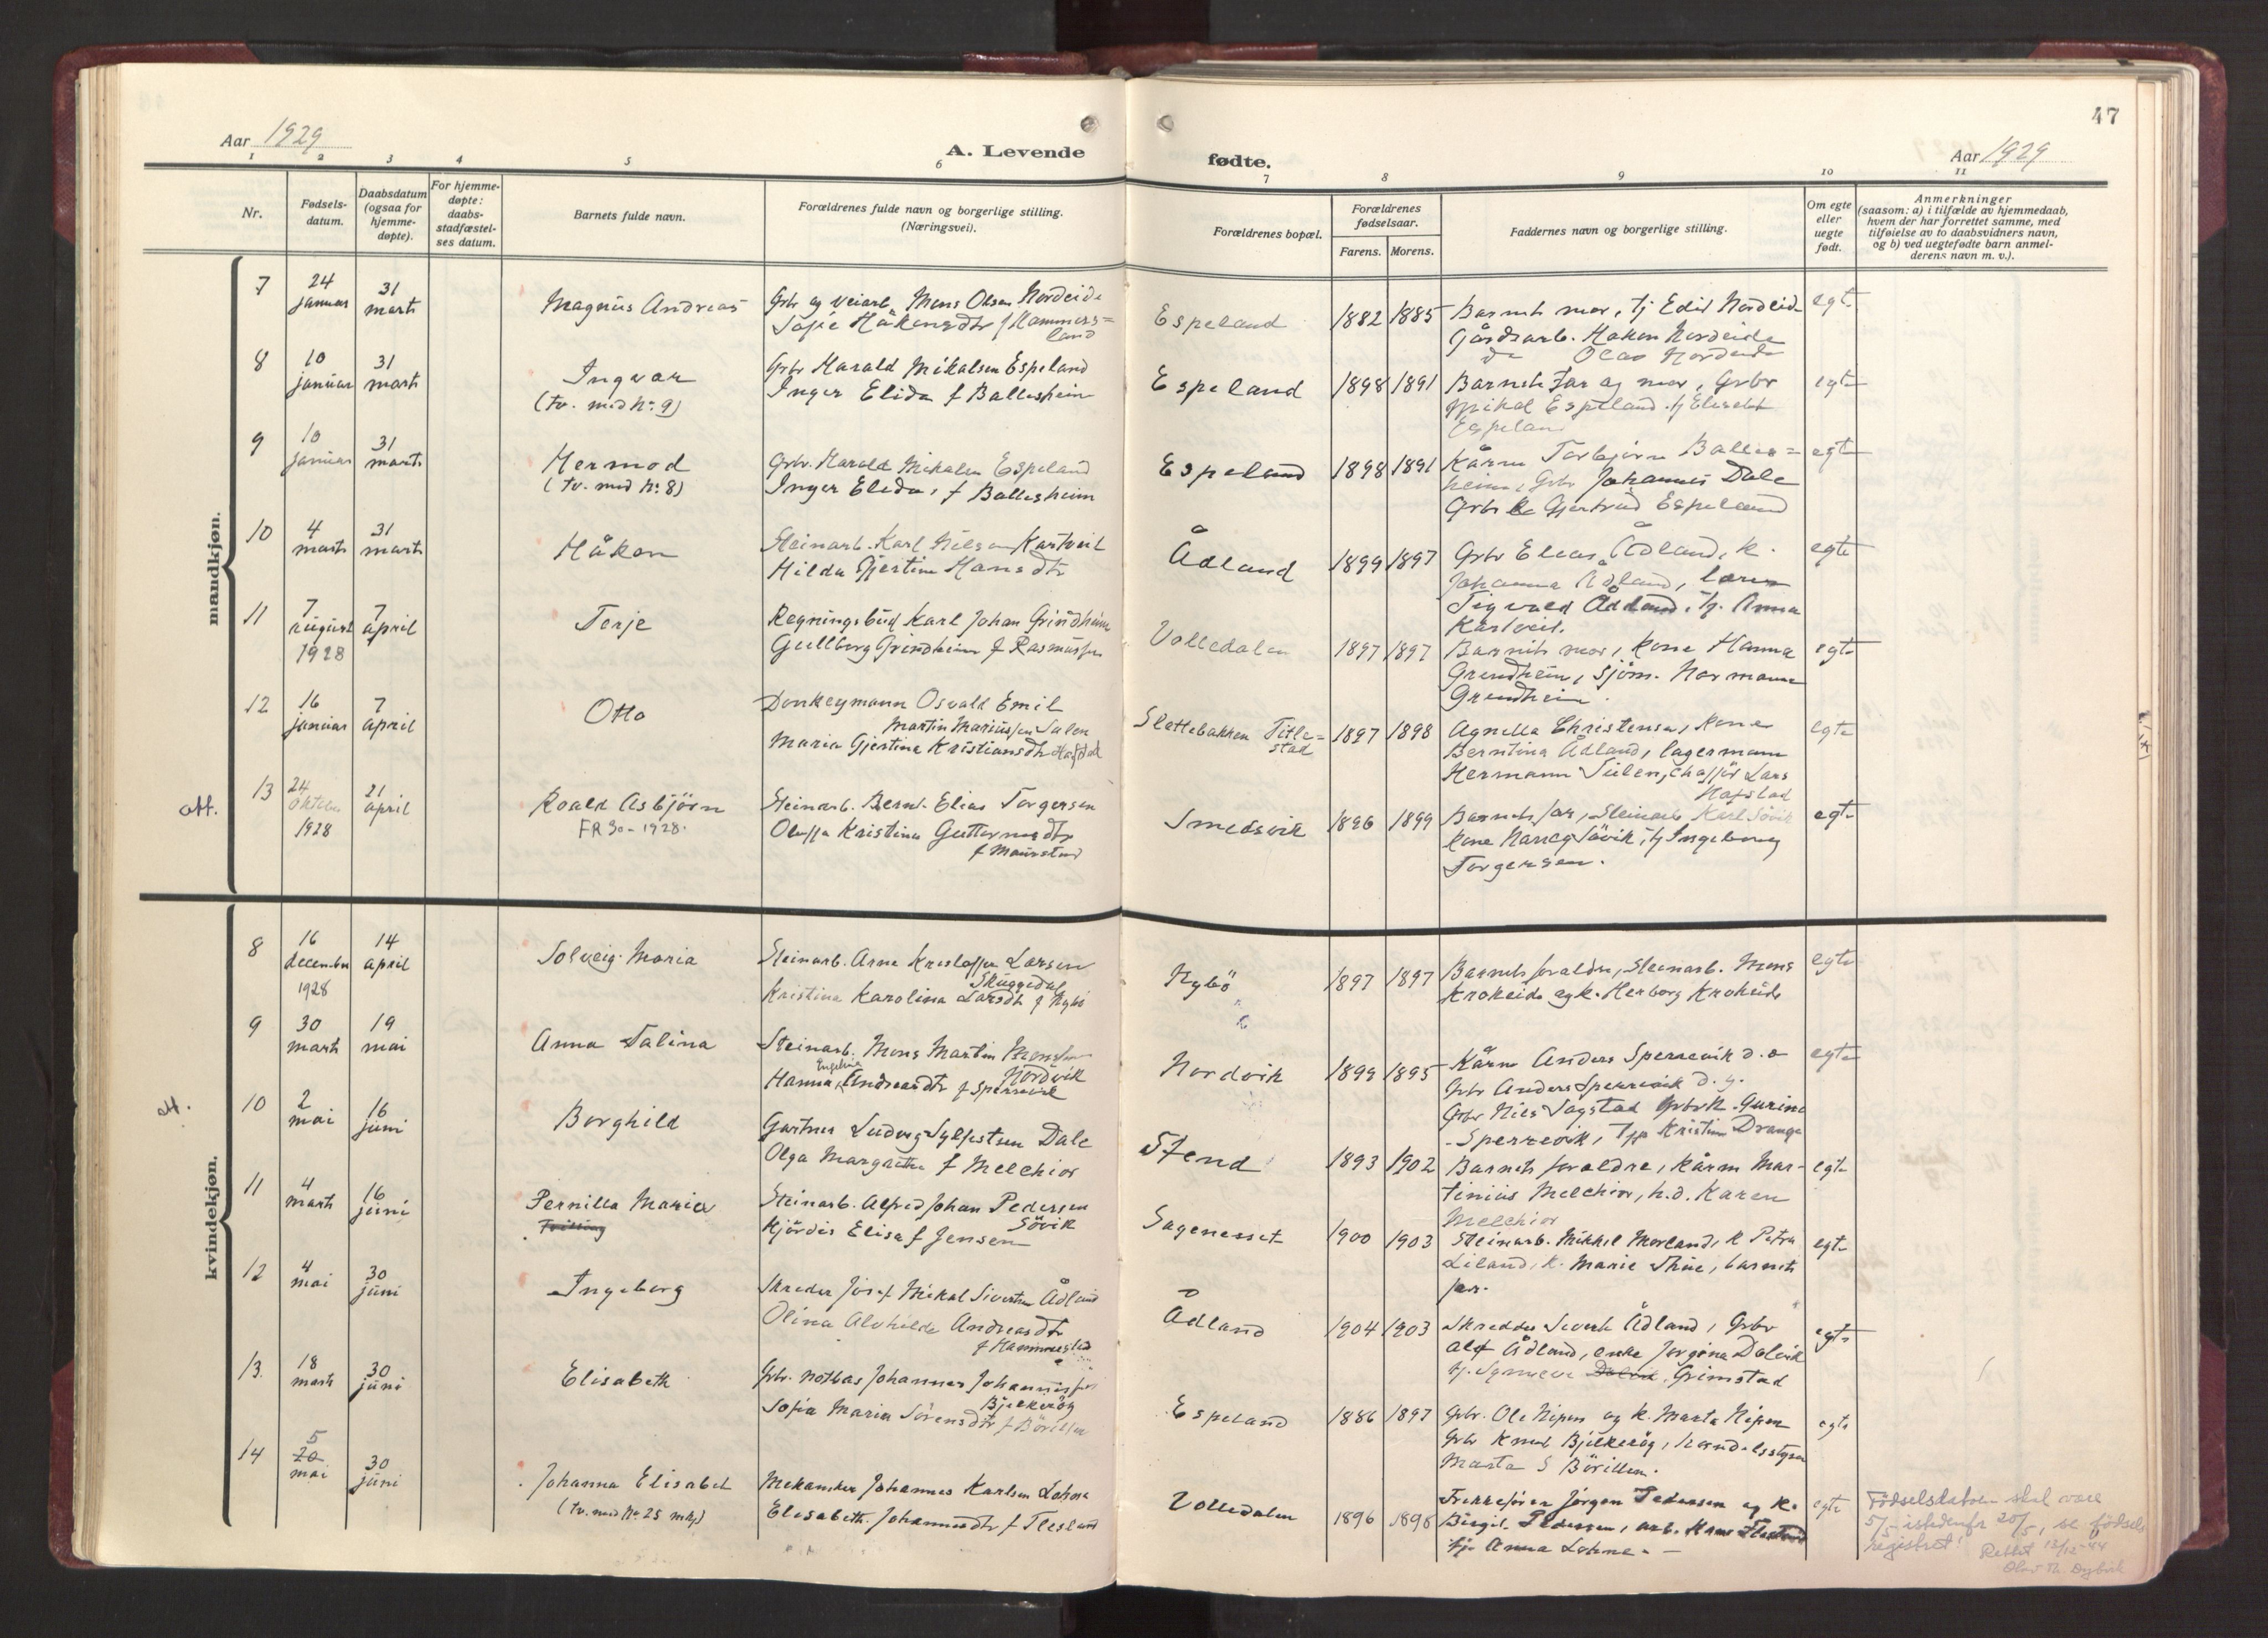 47
Aar 1929
A. Levende
fødte.
Aar 1929
1 2 3 4 5 6 7 8 9 10 11
Nr.
Fødsels-
datum.
Daabsdatum
(ogsaa for
hjemme-
døpte).
For hjemme-
døpte:
daabs-
stadfæstel-
ses datum.
Barnets fulde navn.
Forældrenes fulde navn og borgerlige stilling.
(Næringsvei).
Forældrenes bopæl.
Forældrenes
fødselsaar.
Farens. Morens.
Faddernes navn og borgerlige stilling.
Om egte
eller
uegte
født.
Anmerkninger
(saasom: a) i tilfælde av hjemmedaab,
hvem der har forrettet samme, med
tilføielse av to daabsvidners navn,
og b) ved uegtefødte barn anmel-
derens navn m. v.).
mandkjøn.
7
24
januar
31
marts
Magnus Andreas
Grbr og veiarb. Mons Olsen Nordeide
Sofie Håkonsdtr f Hammers=
land
Espeland
1882 1885
Barnets mor, tj Edit Nordeide
Gårdsarb. Hakon Nordeide
do Olav Nordeide
egte
8
10
januar
31
marts
Ingvar
(tv. med Nº 9)
Grbr Harald Mikalsen Espeland
Inger Elida f Ballesheim
Espeland
1898 1891
Barnets far og mor, Grbr
Mikal Espeland. tj Elisabet
Espeland
egte
9
10
januar
31
marts
Hermod
(tv. med Nº 8)
Grbr. Harald Mikalsen Espeland
Inger Elida, f Ballesheim
Espeland
1898 1891
Kårm Torbjørn Balles=
heim, Grbr Johannes Dale
Grbr k Gjertrud Espeland
egte
10
4
marts
31
marts
Håkon
Steinarb. Karl Nilsen Kartveit
Hilda Gjertine Hansdtr
Ådland
1899 1897
Grbr Elias Ådland, k.
Johanna Ådland,
Sigvald Ådland, tj. Anna
Kartveit.
egte
11
7
august
1928
7
april
Terje
Regningsbud Karl Johan Grindheim
Gullborg Grindheim f Rasmussen
Volledalen
1897 1897
Barnets mor, kone Hanna
Grindheim, sjöm. Normann
Grindheim.
egte
12
16
januar
7
april
Otto
Donkeymann Osvald Emil
Martin Mariussen Sulen
Maria Gjertina Kristiansdtr Hafstad
Slettebakken Title=
stad
1897 1898
Agnella Christensen, kone
Berntina Ådland, lagermann
Hermann Sulen, chaffør Lars
Hafstad
egte
att.
13
24
oktober
1928
21
april
Roald Asbjörn
FR 30 - 1928.
Steinarb. Bernt Elias Torgersen
Oluffa Kristina Guttormsdtr
f Maurstad
Smedsvik
1896 1899
Barnets far, Steinarb Karl Sövik
kone Nancy Sövik, tj Ingeborg
Torgersen.
egte
kvindekjøn.
8
16
december
1928
14
april
Solveig Maria
Steinarb. Arne Kristoffer Larsen
Skuggedal
Kristina Karolina Larsdtr f Nybö
Nybö
1897 1897
Barnets foraldre, Steinarb. Mons
Krokeide og k. Herborg Krokeide
egte
9
30
marts
19
mai
Anna Salina
Steinarb. Mons Martin Monsen
Nordvik
Hanna Engeline Andreasdtr f Sperrevik
Nordvik
1899 1895
Kårm Anders Sperrevik d.e
Grbr Anders Sperrevik d.y.
Grbr Nils Sagstad Grbrk. Gurine
Sperrevik, Kristine Drange
egte
att.
10
2
mai
16
juni
Borghild
Gartner Ludvig Sylfestsen Dale
Olga Margrethe f Melchior
Stend
1893 1902
Barnets foraldre, Kårm Mar-
tinius Melchior, h.d. Karen
Melchior
egte
11
4
marts
16
juni
Pernilla Maria
Steinarb. Alfred Johan Pedersen
Sövik
Hjördis Elisa f Jensen
Sagenesset
1900 1903
Steinarb. Mikkel Morland, k Petra
Liland, k. Marie Thue, barnets
far.
egte
12
4
mai
30
juni
Ingeborg
Skreder Josef Mikal Sivertsen Ådland
Olina Alvhilde Andreasdtr
f Hammersland
Ådland
1904 1903
Skredder Sivert Ådland, Grbr
Alf Ådland, enke Jorgine Dalvik
tj. Synneve Dalvik Grimstad
egte
13
18
marts
30
juni
Elisabeth
Grbr. notbas Johannes Johannessen
Bjelkeröy
Sofia Maria Sörensdtr f Börillsen
Espeland
1886 1897
Grbr. Ole Nipen og k. Marta Nipen
Grbr Knut Bjelkeröy, handelsstyrer
Marta S Börillsen.
egte
14
5
20
mai
30
juni
Johanna Elisabet
(tv. med Nº 25 mkj)
Mekaniker Johannes Karlsen Lohne
Elisabeth Johannesdtr f Flesland
Volledalen
1896 1898
Trikkefører Jørgen Pedersen og k.
Birgit Pedersen, arb. Hans Flesland
tje Anna Lohne.
egte
Födselsdatoen skal være
5/5 istedenfr 20/5, se födsels
registret! Rettet 13/12-44